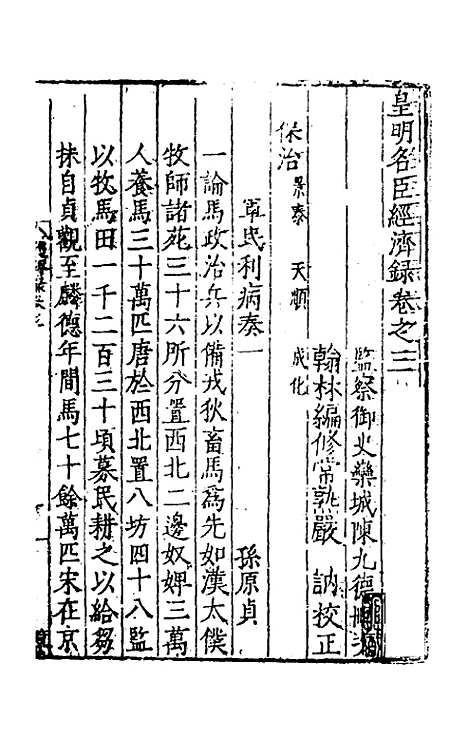 皇明名臣經濟録卷之三
監察御史欒城陳九德刪次
翰林編修常熟嚴 訥校正
保治景泰 天順 成化
軍民利病奏一 孫原貞
一論馬政治兵以備戎狄畜馬爲先如漢太僕
牧師諸苑三十六所分置西北二邊奴婢三萬
人養馬三十萬匹唐於西北置八坊四十八監
以牧馬田一千二百三十頃募民耕之以給芻
抹自貞觀至麟德年間馬七十餘萬匹宋在京